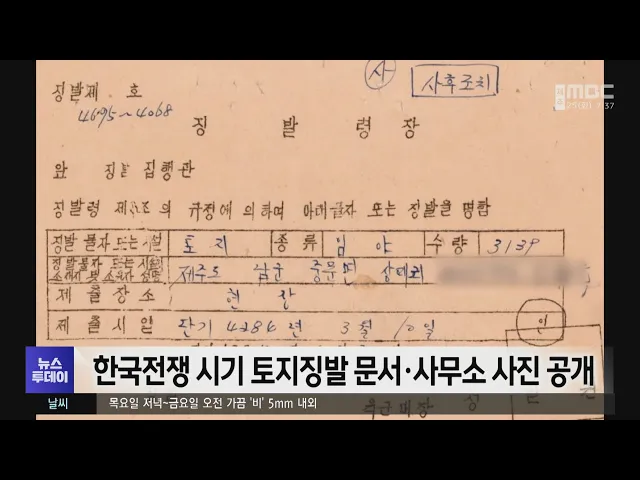 사
사후조치
MBC
7:37
징발제 호
4695~4068
징 발 령 장
징발 집행관
징발령 제 조의 규정에 의하여 아래물자 또는 징발을 명함
징발 물자 또는 시설 토지 종류 임야 수량 3139
징발물자 또는 시설
제주도 남군 중문면 상예리
제출장소 현장
제출시일 단기 4284년 3월 10일
인
뉴스
투데이
한국전쟁 시기 토지징발 문서·사무소 사진 공개
날씨 목요일 저녁~금요일 오전 가끔 '비' 5mm 내외